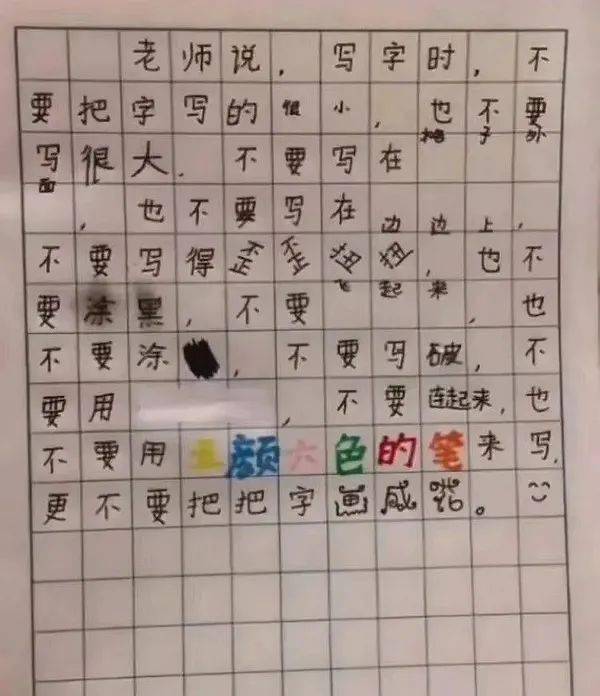 老师说，写字时，不
要把字写的很小，也不要
写很大．不要写在格子外
面，也不要写在边边上，
不要写得歪歪扭扭，也不
要涂黑，不要飞起来，也
不要涂，不要写破，不
要用，不要连起来，也
不要用五颜六色的笔来写，
更不要把把字画花。